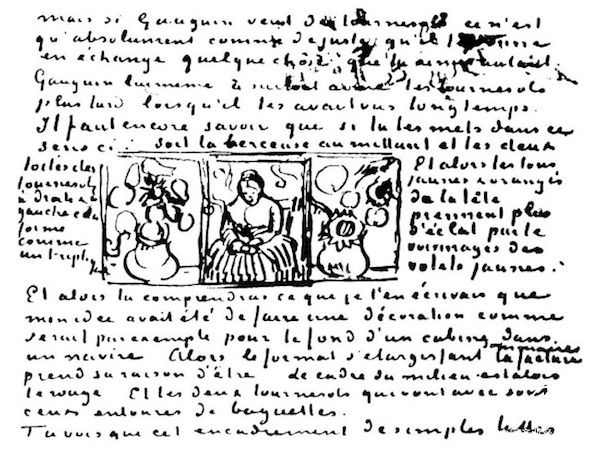 mais si Gauguin veut des tournesols ce n'est
qu'absolument comme de juste qu'il te donne
en échange quelque chose que tu aimes autant.
Gauguin lui meme a surtout aimé les tournesols
plus tard lorsqu'il les avait vus longtemps.
Il faut encore savoir que si tu les mets dans ce
sens ci : soit la berceuse au millieu et les deux
toiles des
tournesols
à droite &
gauche cela
forme
comme
un tryptique
Et alors les tons
jaunes & orangés
de la tête
prennent plus
d'éclat par le
voisinages des
volets jaunes.
Et alors tu comprendras ce que je t'en écrivais que
mon idee avait été de faire une décoration comme
serait par exemple pour le fond d'un cabine dans
un navire Alors le format s'elargissant la facture sommaire
prend sa raison d'être le cadre du milieu est alors
le rouge Et les deux tournesols qui vont avec sont
ceux entoures de baguettes.
Tu vois que cet encadrement de simples lattes